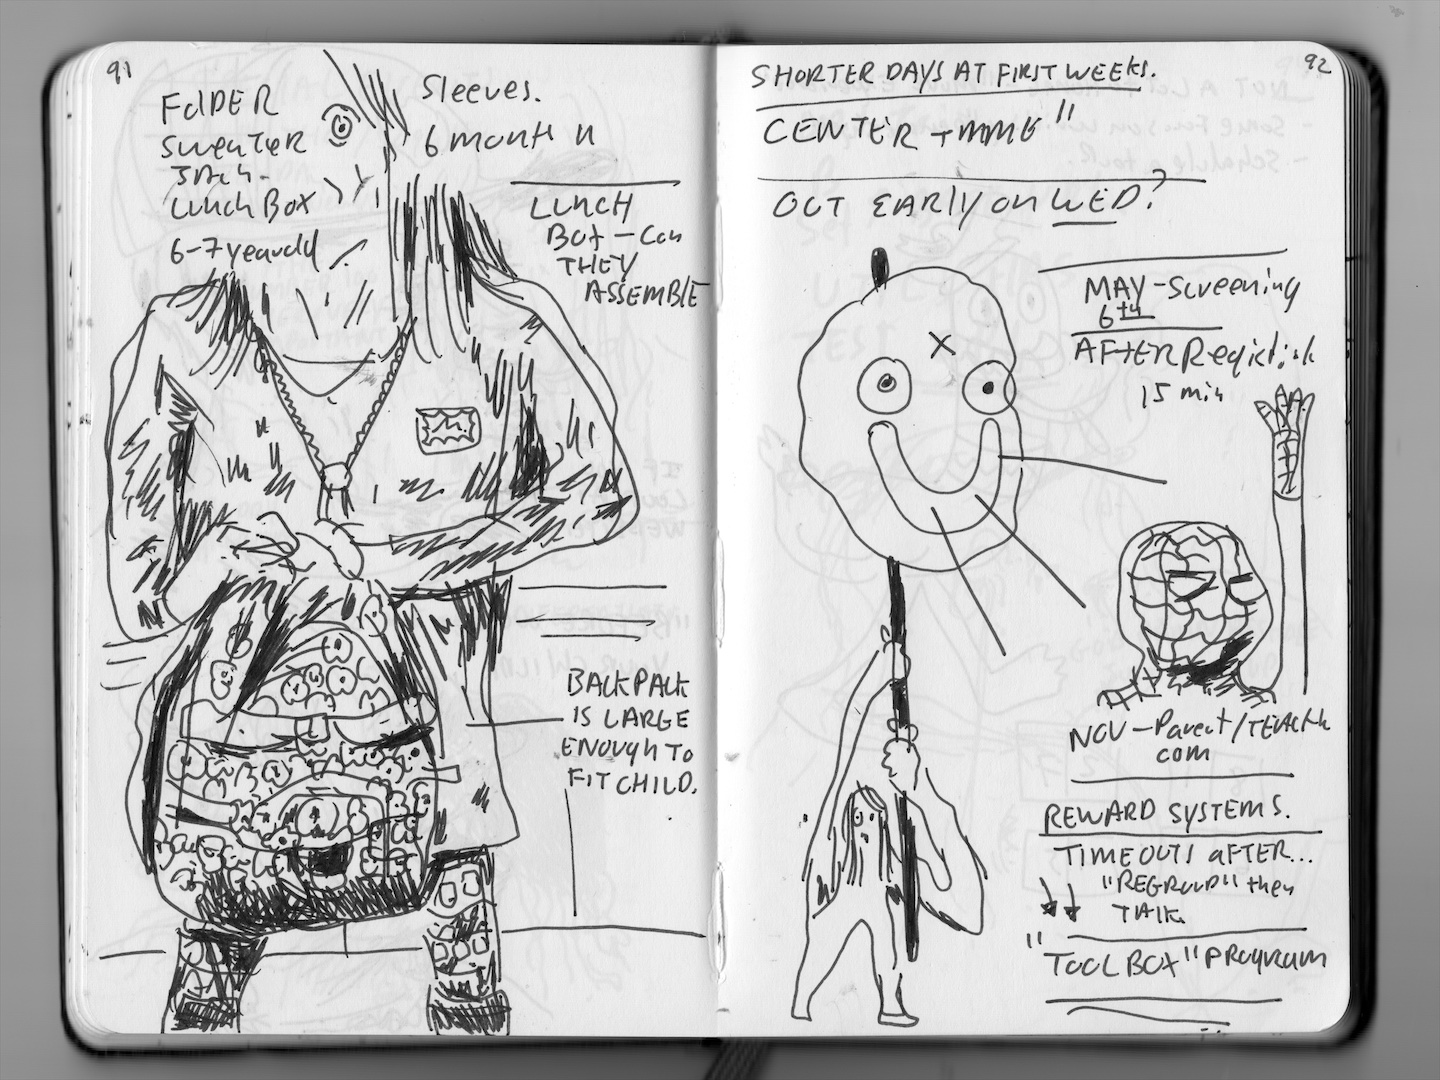 91
FOLDER
SWEATER
LUNCH BOX
6-7 year old
Sleeves.
6 month
LUNCH
BOX - Can
THEY
ASSEMBLE
BACKPACK
IS LARGE
ENOUGH TO
FIT CHILD.
92
SHORTER DAYS AT FIRST WEEKS.
CENTER TIME"
OUT EARLY ON WED?
MAY - Screening
6th
AFTER
15 min
NOV - Parent/TEACH
com
REWARD SYSTEMS.
TIMEOUTS AFTER...
"REGROUP" they
TALK
"TOOL BOX" PROGRAM